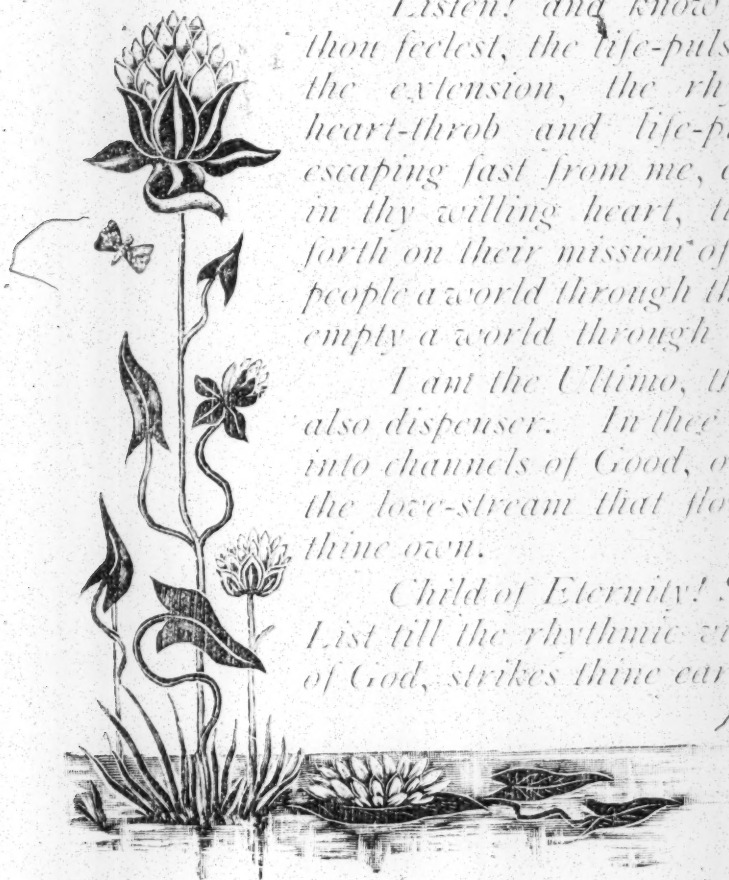 Listen! and know
thou feelest, the life-puls
the extension, the rh
heart-throb and life-p
escaping fast from me,
in thy willing heart, t
forth on their mission of
people a world through th
empty a world through
I am the Ultimo, th
also dispenser. In thee
into channels of Good, o
the love-stream that flo
thine own.
Child of Eternity! S
List till the rhythmic vi
of God, strikes thine ear